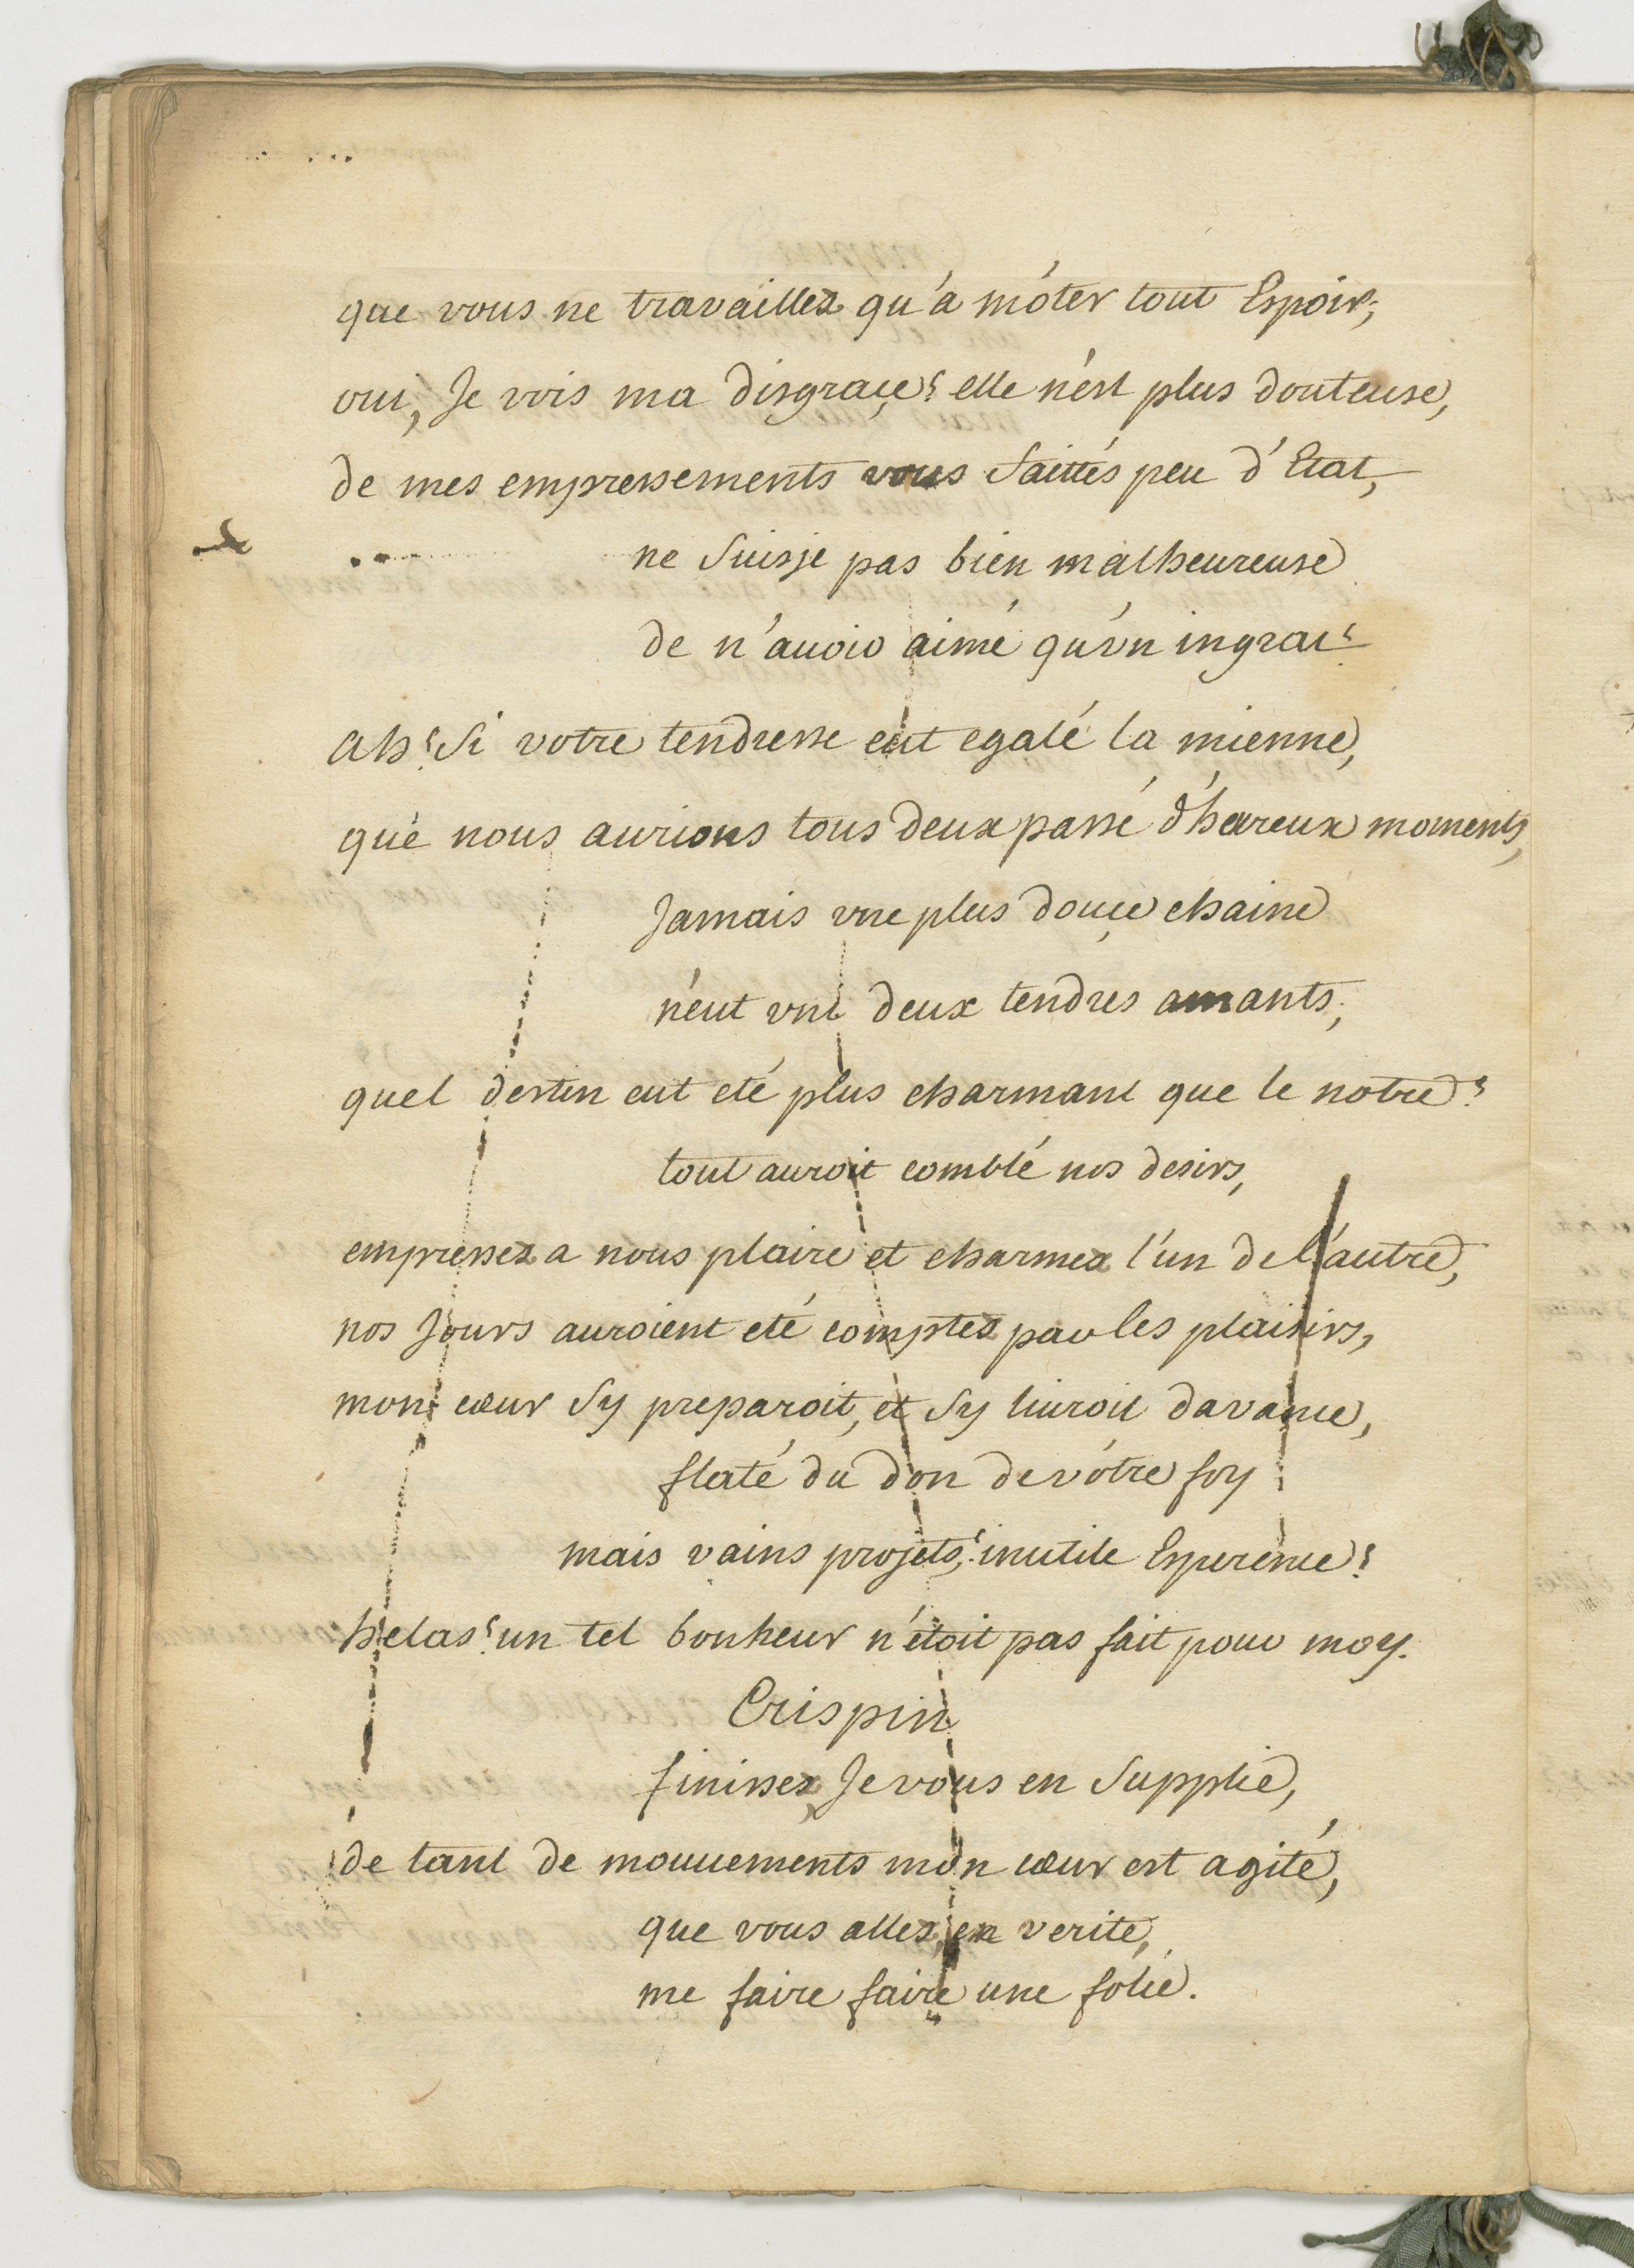 que vous ne travaillez qu'a m'óter tout Espoir;
oui, Je vois ma disgraçe! elle n'est plus douteuse,
de mes empressements vous faittés peu d'Etat,
ne suisje pas bien malheureuse
de n'auoir aimé qu'vn ingrat!
ah! si votre tendresse eut egalé la mienne,
que nous aurions tous deux passé d'heureux moments,
Jamais vne plus douçe chaine
n'eut vni deux tendres amants;
quel destin eut eté plus charmant que le notre!
tout auroit comblé nos desirs,
empressez a nous plaire et charmez l'un de l'autre,
nos Jours auroient eté comptez par les plaisirs,
mon cœur sy preparoit, et sy liuroit davance,
flaté du don de vótre foy
mais vains projets,! inutile Esperence!
helas! un tel bonheur n'étoit pas fait pour moy.
Crispin
finissez Je vous en supplie,
de tant de mouuements mon cœur est agité,
que vous allez, en verité,
me faire faire une folie.